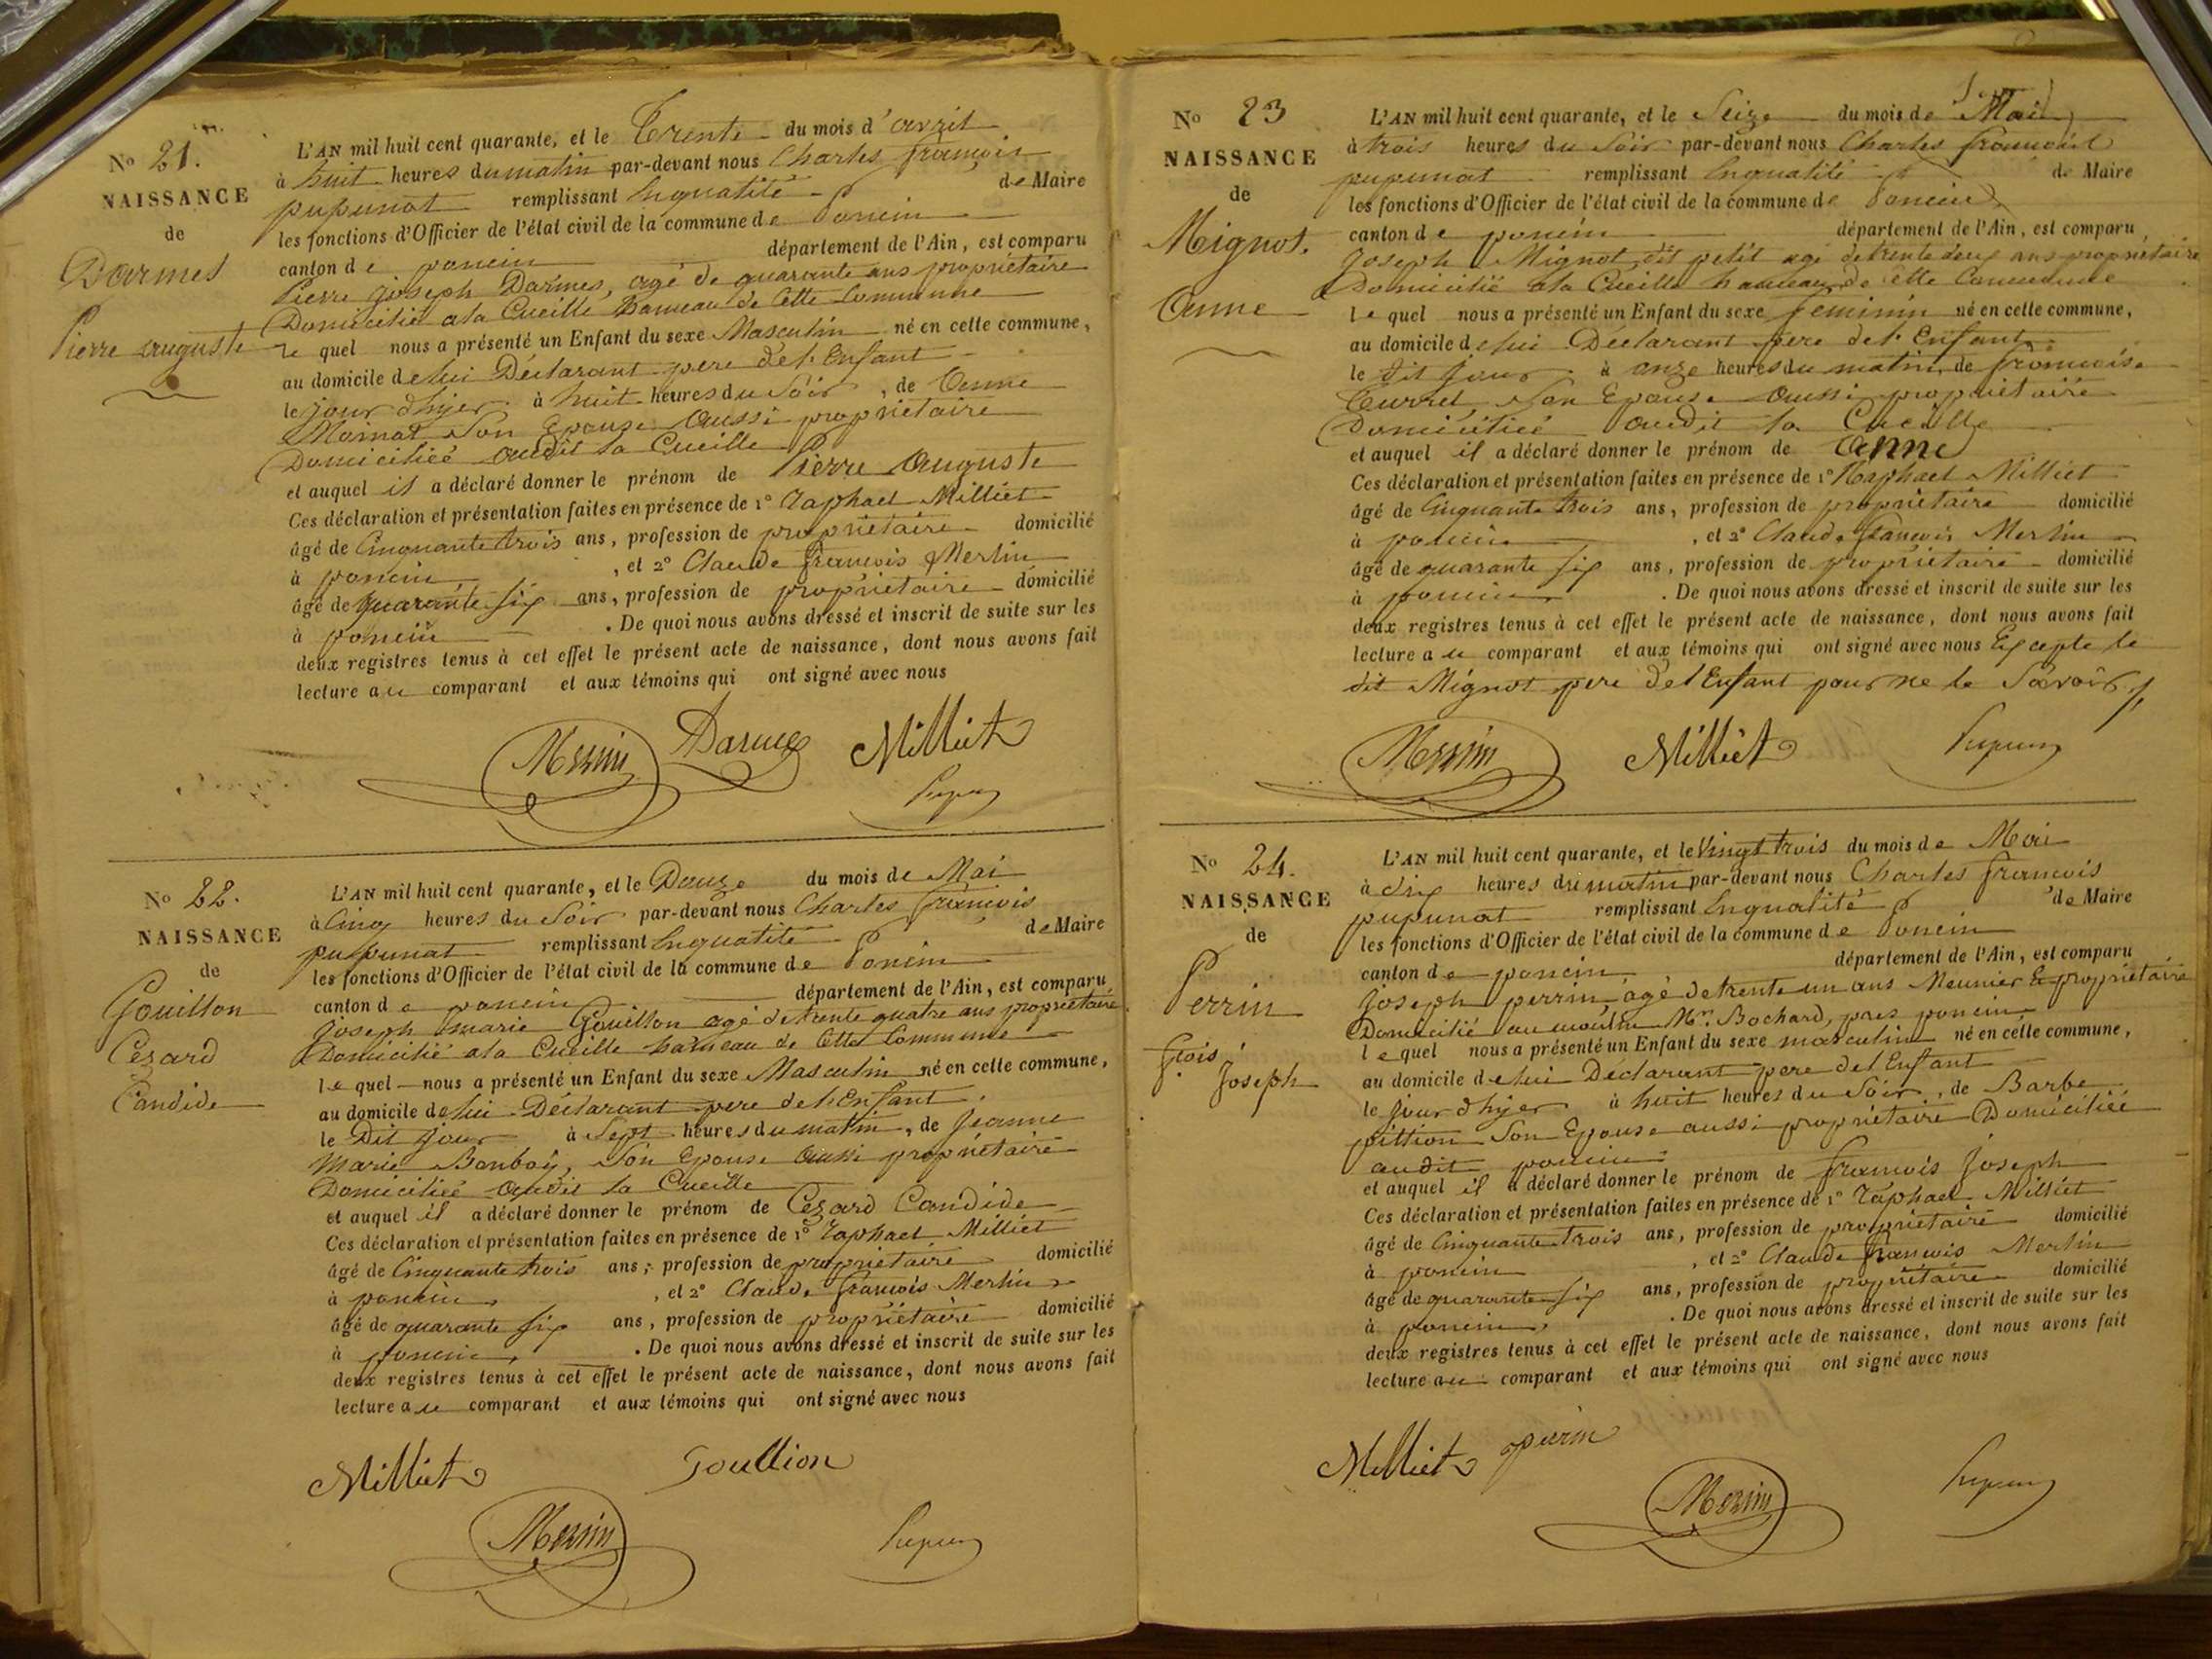 N° 21.
NAISSANCE
de
Darmes
Pierre auguste
L'AN mil huit cent quarante, et le Trente du mois d'avril
à huit heures du matin par-devant nous Charles françois
pupunat remplissant Enqualité de Maire
les fonctions d'Officier de l'état civil de la commune de Poncin
canton de poncin département de l'Ain, est comparu
Pierre joseph Darmes, agé de quarante ans propriétaire
Domicilié ala Cueille hameau de Cette Commune
le quel nous a présenté un Enfant du sexe Masculin né en cette commune,
au domicile de lui Déclarant pere de l'Enfant
le jour d'hyer à huit heures du Soir, de Anne
Moinat Son Epouse Aussi propriétaire
Domiciliée audit la Cueille
et auquel il a déclaré donner le prénom de Pierre Auguste
Ces déclaration et présentation faites en présence de 1° Raphael Milliet
âgé de Cinquante trois ans, profession de propriétaire domicilié
à poncin, et 2° Claude françois Merlin
âgé de quarante six ans, profession de propriétaire domicilié
à poncin. De quoi nous avons dressé et inscrit de suite sur les
deux registres tenus à cet effet le présent acte de naissance, dont nous avons fait
lecture au comparant et aux témoins qui ont signé avec nous
Merlin Darmes Milliet
Pupun
N° 22.
NAISSANCE
de
Gouillon
Cezard
Candide
L'AN mil huit cent quarante, et le Douze du mois de Mai
à Cinq heures du Soir par-devant nous Charles françois
pupunat remplissant Enqualité de Maire
les fonctions d'Officier de l'état civil de la commune de Poncin
canton de poncin département de l'Ain, est comparu
joseph marie Gouillon agé de trente quatre ans propriétaire
Domicilié ala Cueille hameau de Cette Commune
le quel nous a présenté un Enfant du sexe Masculin né en cette commune,
au domicile de lui Déclarant pere de l'Enfant
le Dit jour à Sept heures du matin, de Jeanne
Marie Bonboy, Son Epouse Aussi propriétaire
Domiciliée audit la Cueille
et auquel il a déclaré donner le prénom de Cezard Candide
Ces déclaration et présentation faites en présence de 1° Raphael Milliet
âgé de Cinquante trois ans, profession de propriétaire domicilié
à poncin, et 2° Claude françois Merlin
âgé de quarante six ans, profession de propriétaire domicilié
à poncin. De quoi nous avons dressé et inscrit de suite sur les
deux registres tenus à cet effet le présent acte de naissance, dont nous avons fait
lecture au comparant et aux témoins qui ont signé avec nous
Milliet Goullion
Merlin Pupun
N° 23
NAISSANCE
de
Mignot.
Anne
L'AN mil huit cent quarante, et le Seize du mois de Mai
à trois heures du Soir par-devant nous Charles françois
pupunat remplissant Enqualité de Maire
les fonctions d'Officier de l'état civil de la commune de Poncin
canton de poncin département de l'Ain, est comparu,
joseph Mignot dit petit agé de trente deux ans propriétaire
Domicilié ala Cueille hameau de Cette Commune
le quel nous a présenté un Enfant du sexe feminin né en cette commune,
au domicile de lui Déclarant pere de l'Enfant
le dit jour à onze heures du matin, de françoise
Curret Son Epouse Aussi propriétaire
Domiciliée audit la Cueille
et auquel il a déclaré donner le prénom de Anne
Ces déclaration et présentation faites en présence de 1° Raphael Milliet
âgé de Cinquante trois ans, profession de propriétaire domicilié
à poncin, et 2° Claude françois Merlin
âgé de quarante six ans, profession de propriétaire domicilié
à poncin. De quoi nous avons dressé et inscrit de suite sur les
deux registres tenus à cet effet le présent acte de naissance, dont nous avons fait
lecture au comparant et aux témoins qui ont signé avec nous Excepte le
dit Mignot pere de l'Enfant pour ne le Savoir
Merlin Milliet Pupun
N° 24.
NAISSANCE
de
Perrin
fçois
Joseph
L'AN mil huit cent quarante, et le Vingt trois du mois de Mai
à dix heures du matin par-devant nous Charles françois
pupunat remplissant Enqualité de Maire
les fonctions d'Officier de l'état civil de la commune de Poncin
canton de poncin département de l'Ain, est comparu
joseph perrin agé de trente un ans Meunier & propriétaire
Domicilié au moulin Mr. Bochard, pres poncin
le quel nous a présenté un Enfant du sexe masculin né en cette commune,
au domicile de lui Declarant pere de l'Enfant
le jour d'hyer à huit heures du Soir, de Barbe
pittion Son Epouse aussi propriétaire Domiciliée
audit poncin
et auquel il a déclaré donner le prénom de françois Joseph
Ces déclaration et présentation faites en présence de 1° Raphael Milliet
âgé de Cinquante trois ans, profession de propriétaire domicilié
à poncin, et 2° Claude françois Merlin
âgé de quarante six ans, profession de propriétaire domicilié
à poncin. De quoi nous avons dressé et inscrit de suite sur les
deux registres tenus à cet effet le présent acte de naissance, dont nous avons fait
lecture au comparant et aux témoins qui ont signé avec nous
Milliet perrin
Merlin Pupun